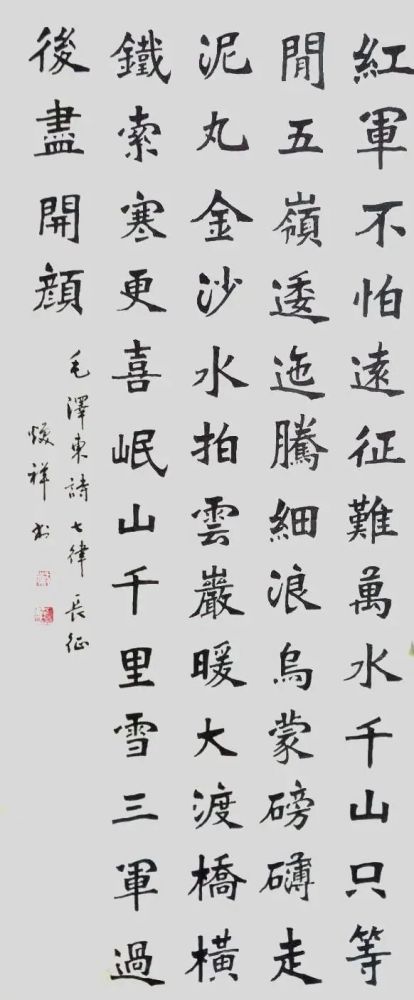 紅軍不怕遠征難萬水千山只等
閒五嶺逶迤騰細浪烏蒙磅礴走
泥丸金沙水拍雲巖暖大渡橋橫
鐵索寒更喜岷山千里雪三軍過
後盡開顔
毛澤東詩七律長征
焌祥书